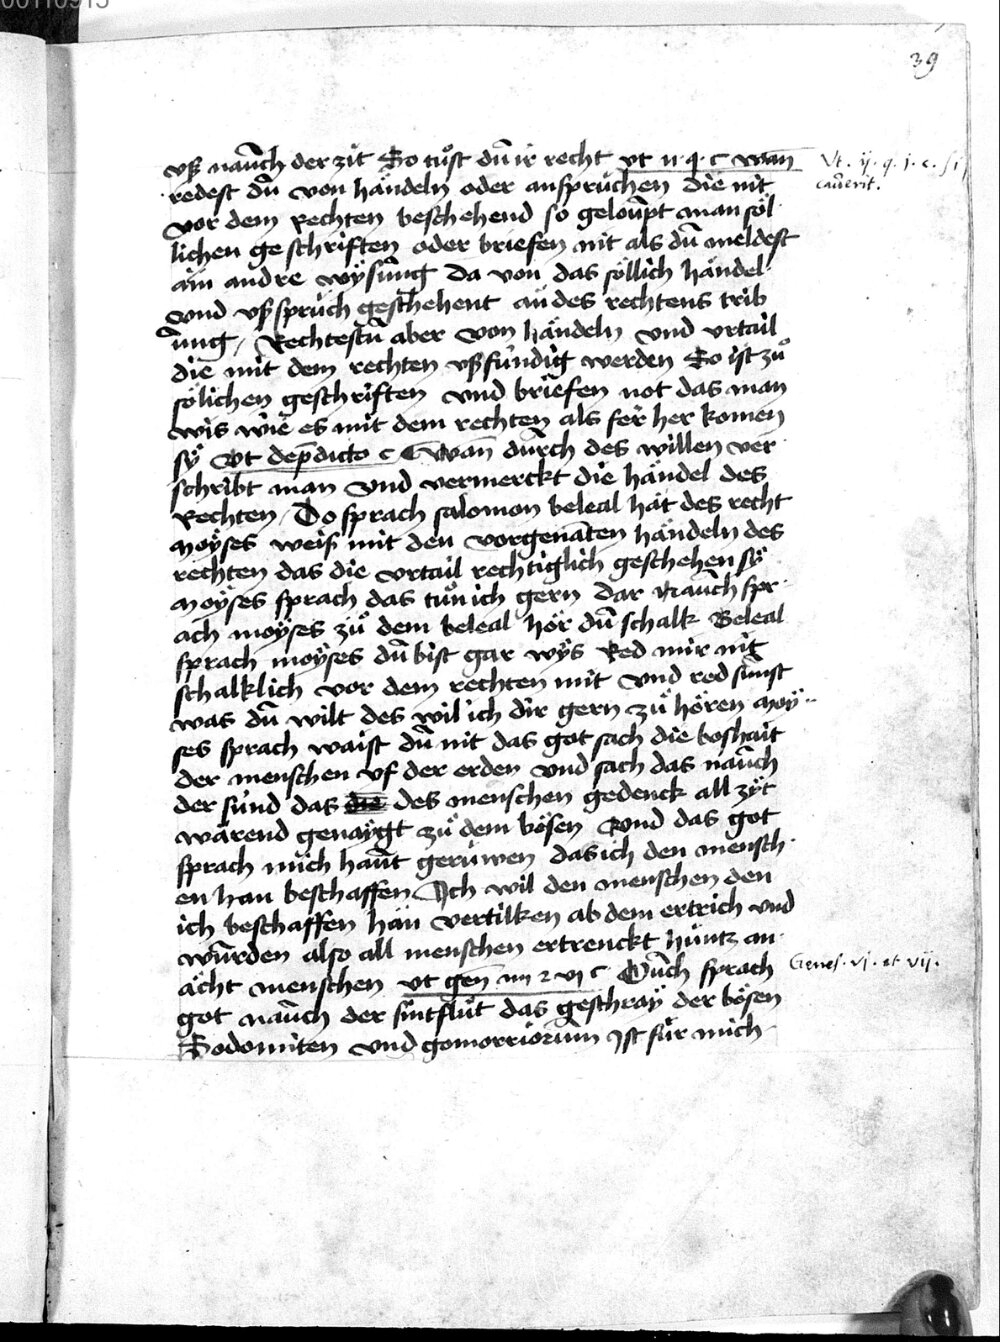 39
vß nauch der zit So tuͦst du ir recht vt ii q c wan
Vt. ij. q. j. c. si
cauerit.
redest du von händeln oder ansprüchen die nit
vor dem Rechten beschehend so geloupt man söl
lichen geschriften oder briefen nit als du meldest
ain andre wÿsung da von das söllich händel
vnd vßsprüch geschehent an des rechtens trib
ung / Rechtestu aber von händeln vnd vrtail
die mit dem rechten vßfündig werden So ist zuͦ
sölichen geschriften vnd briefen not das man
wis wie es mit dem rechten als fer her komen
sÿ Vt depdicto c Wan durch des willen ver
schribt man vnd vermerckt die händel des
Rechten / Do sprach salomon beleal hat des recht
moÿses weiß mit den vorgenāten händeln des
rechten das die vrtail rechtiglich geschehen sÿ
moÿses sprach das tuͦn ich gern dar nauch spr
ach moÿses zuͦ dem beleal hör du schalk Beleal
sprach moÿses du bist gar wÿs Red mir nit
schalklich vor dem rechten mit vnd red sunst
was du wilt des wil ich dir gern zuͦ hören moÿ
ses sprach waist du nit das got sach die boshait
der menschen vf der erden vnd sach das nauch
der sünd das des menschen gedenck all zÿt
wärend genaÿgt zuͦ dem bösen Vnd das got
sprach mich haut gerüwen das ich den mensch
en han beschaffen Ich wil den menschen den
ich beschaffen hän vertilken ab dem ertrich vnd
wurden also all menschen ertrenckt hüntz an
ächt menschen vt gen iiii 2 vi c Ouch sprach
Genes. vj. et vij.
got nauch der sintflut das geschraÿ der bösen
Sodomiten vnd gomorriorum Ist für mich